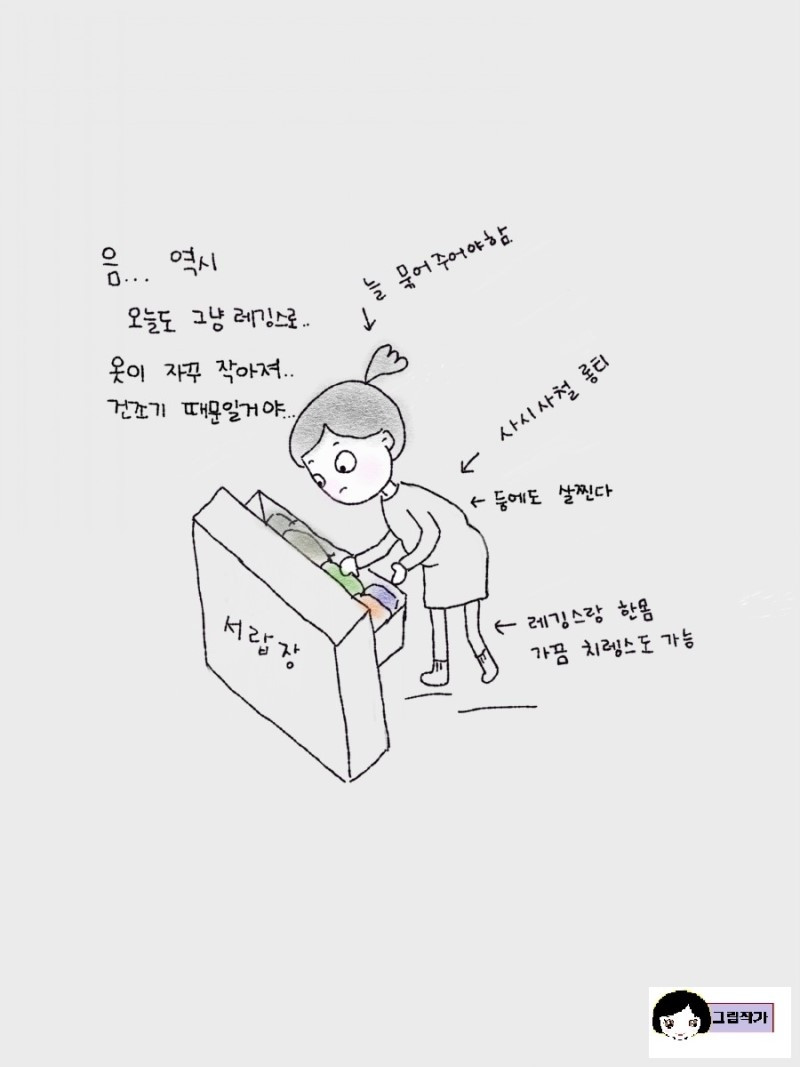 음... 역시
오늘도 그냥 레깅스로..
옷이 자꾸 작아져..
건조기 때문일거야...
늘 묶어주어야함
사시사철 롱티
등에도 살찐다
레깅스랑 한몸
가끔 치렝스도 가능
서랍장
그림작가